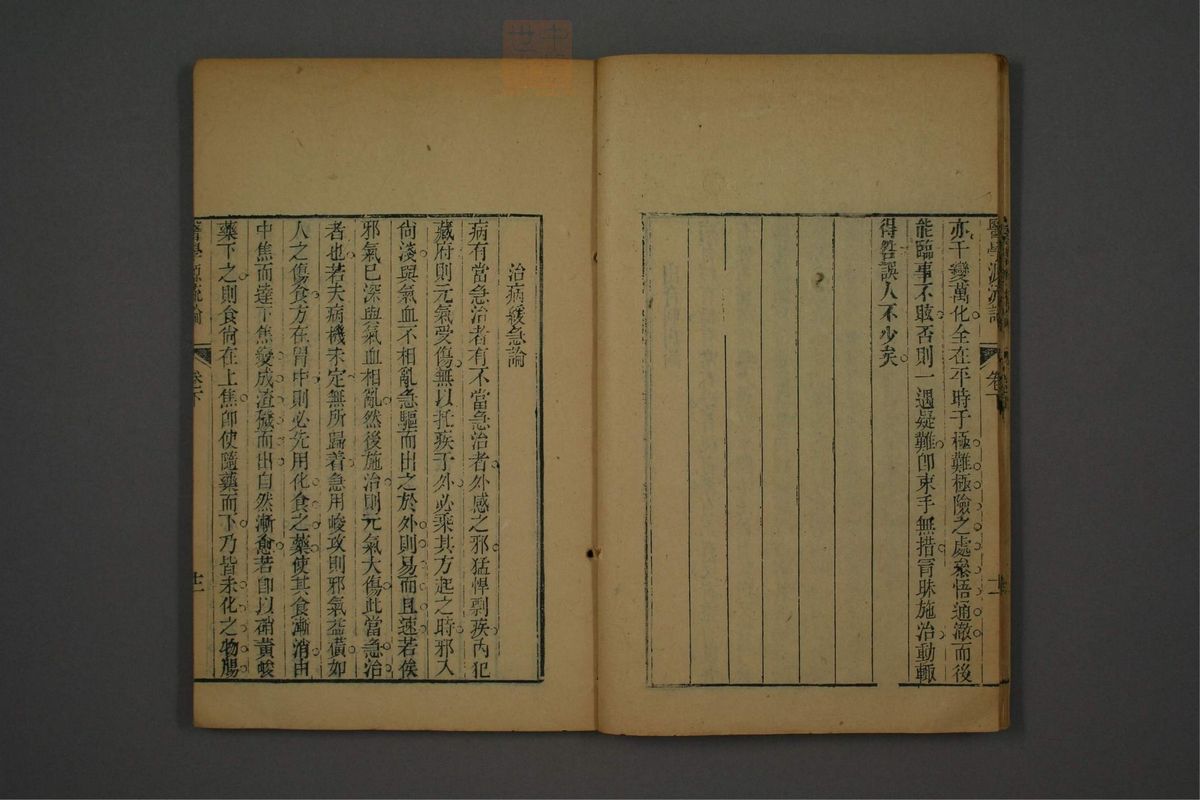 醫學源流論
卷下
亦千變萬化全在平時于極難極險之處叅悟通澈而後
能臨事不眩否則一遇疑難卽束手無措冐昧施治動輒
得咎誤人不少矣
治病緩急論
病有當急治者有不當急治者外感之邪猛悍剽疾內犯
藏府則元氣受傷無以托疾于外必乘其方起之時邪入
尙淺與氣血不相亂急驅而出之於外則易而且速若俟
邪氣已深與氣血相亂然後施治則元氣大傷此當急治
者也若夫病機未定無所歸着急用峻攻則邪氣益橫如
人之傷食方在胃中則必先用化食之藥使其食漸消由
中焦而達下焦變成渣穢而出自然漸愈若卽以硝黃峻
藥下之則食尙在上焦卽使隨藥而下乃皆未化之物腸
醫學源流論
卷下
十二